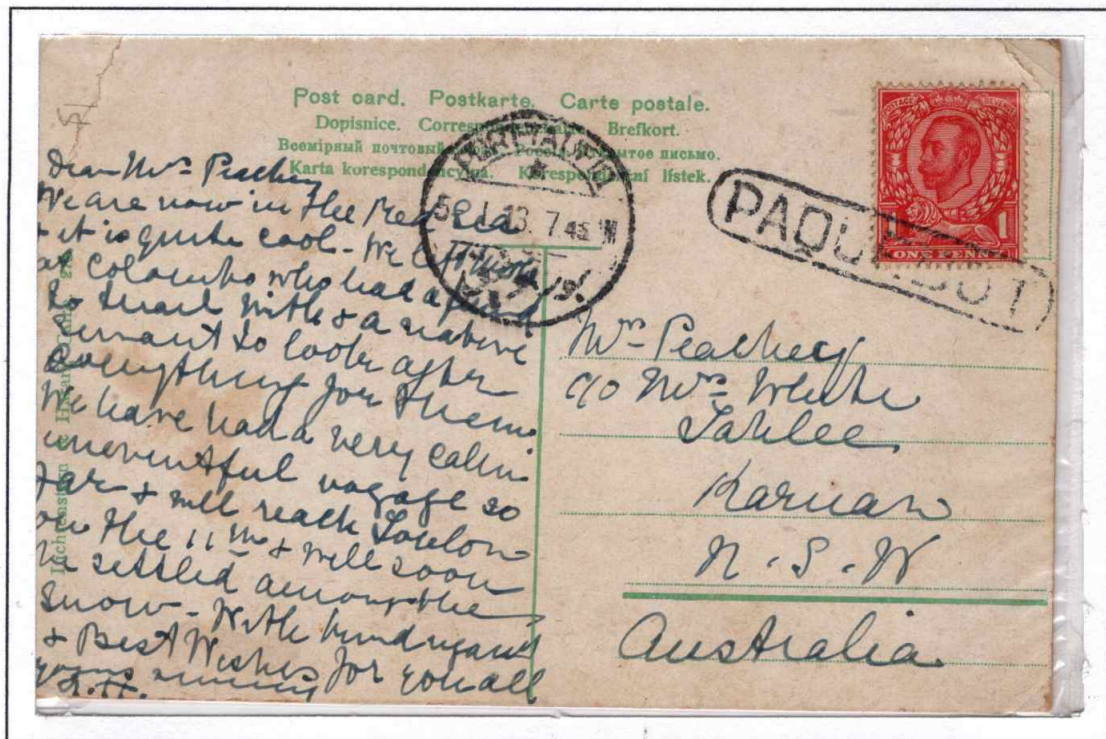 Post card. Postkarte. Carte postale.
Dopisnice. Brefkort.
Всемірный почтовый
Karta korespondencyjna. lístek.
PAQUEBOT
POSTAGE REVENUE
1
ONE PENNY
5 13 7 45
Dear Mrs Peachey
We are now in the Red Sea
& it is quite cool - We
at Colombo who had a
to travel with & a native
servant to look after
everything for them
We have had a very calm
uneventful voyage so
far & will reach Toulon
on the 11th & will soon
be settled among the
snow - With kind regards
& Best Wishes for you all
Mrs Peachey
c/o Mrs White
Tahlee
Karuah
N.S.W
Australia